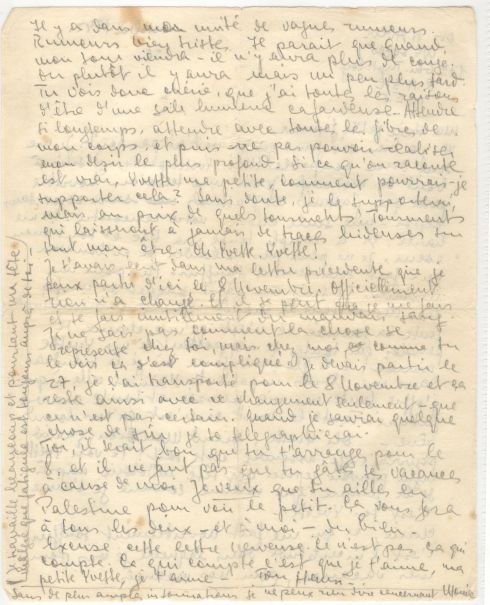 Il y a dans mon unité de vagues rumeurs.
Rumeurs bien tristes. Il parait que quand
mon tour viendra - il n'y aura plus de congé.
Ou plutôt il y aura mais un peu plus tard.
Tu vois donc chérie, que j'ai toutes les raisons
d'être d'une sale humeur cafardeuse. Attendre
si longtemps, attendre avec toutes les fibres de
mon corps et puis ne pas pouvoir réaliser
mon désir le plus profond. Si ce qu'on raconte
est vrai, Yvette ma petite, comment pourrais-je
supporter cela? Sans doute, je le supporterai,
mais au prix de quels tourments! Tourments
qui laisseront à jamais de traces hideuses sur
tout mon être. Oh Yvette, Yvette!
Je t'avais écrit dans ma lettre précédente que je
peux partir d'ici le 8 Novembre. Officiellement
rien n'a changé. Et il se peut que je me fais
et te fais inutilement du mauvais sang.
Je ne sais pas comment la chose se
représente chez toi, mais chez moi, comme tu
le vois ça s'est compliqué. Je devais partir le
27, je l'ai transporté pour le 8 Novembre et ça
reste ainsi avec ce changement seulement - que
ce n'est pas certain. Quand je saurai quelque
chose de sûr je te télégraphierai.
Toi, il serait bon que tu t'arranges pour le
8, et il ne faut pas que tu gâtes tes vacances
à cause de moi. Je veux que tu ailles en
Palestine pour voir le petit. Ça vous fera
à tous les deux - et à moi - du bien.
Excuse cette lettre nerveuse. Ce n'est pas ça qui
compte. Ce qui compte c'est que je t'aime, ma
petite Yvette, je t'aime Ton
Sans de plus amples informations je ne peux rien dire concernant
Je travaille beaucoup et pourtant ma tête
est toujours auprès de toi.